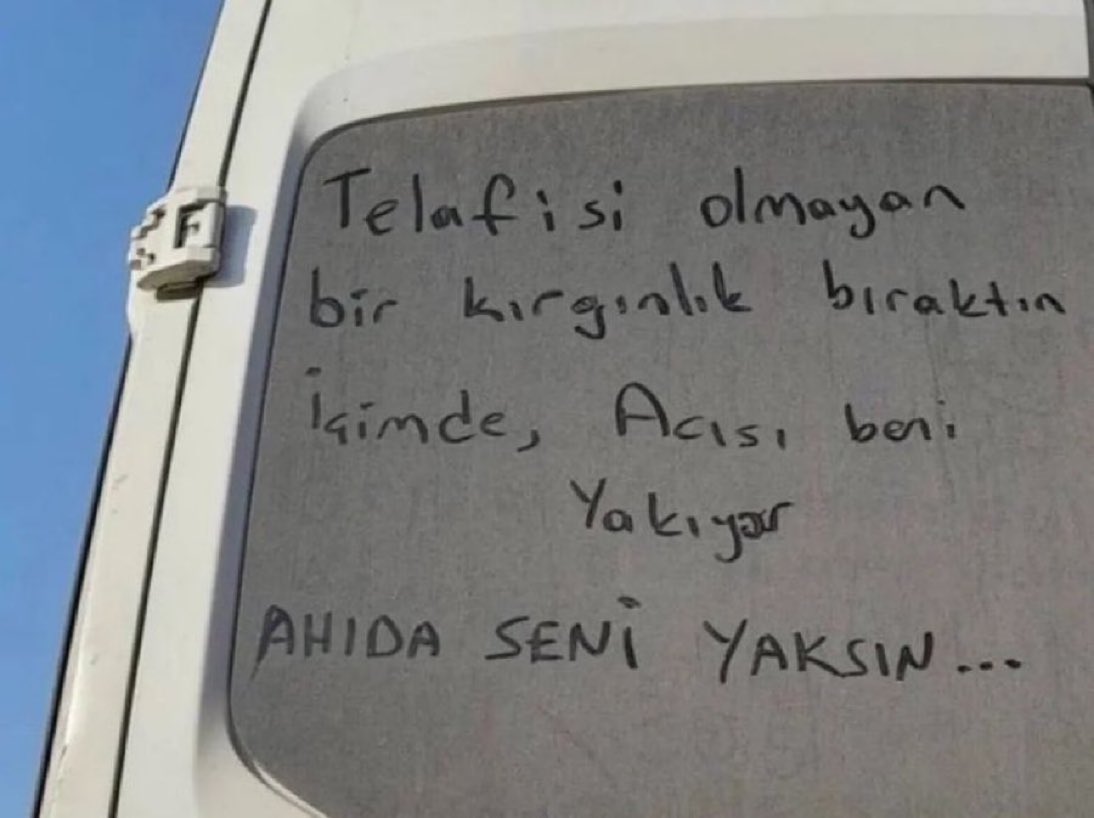 Telafisi olmayan
bir kırgınlık bıraktın
İçimde, Acısı beni
Yakıyor
AHIDA SENİ YAKSIN...